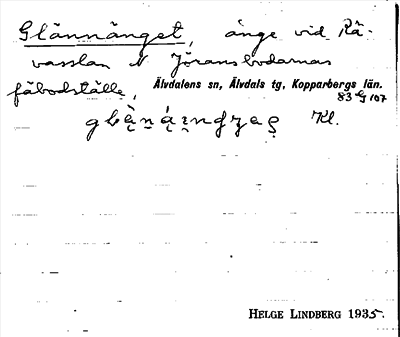 Glännänget, änge vid Rä-
vasslan N Jöransbodarnas
fäbodställe, Älvdalens sn, Älvdals tg, Kopparbergs län.
83 G 107
Kl.
HELGE LINDBERG 1935.